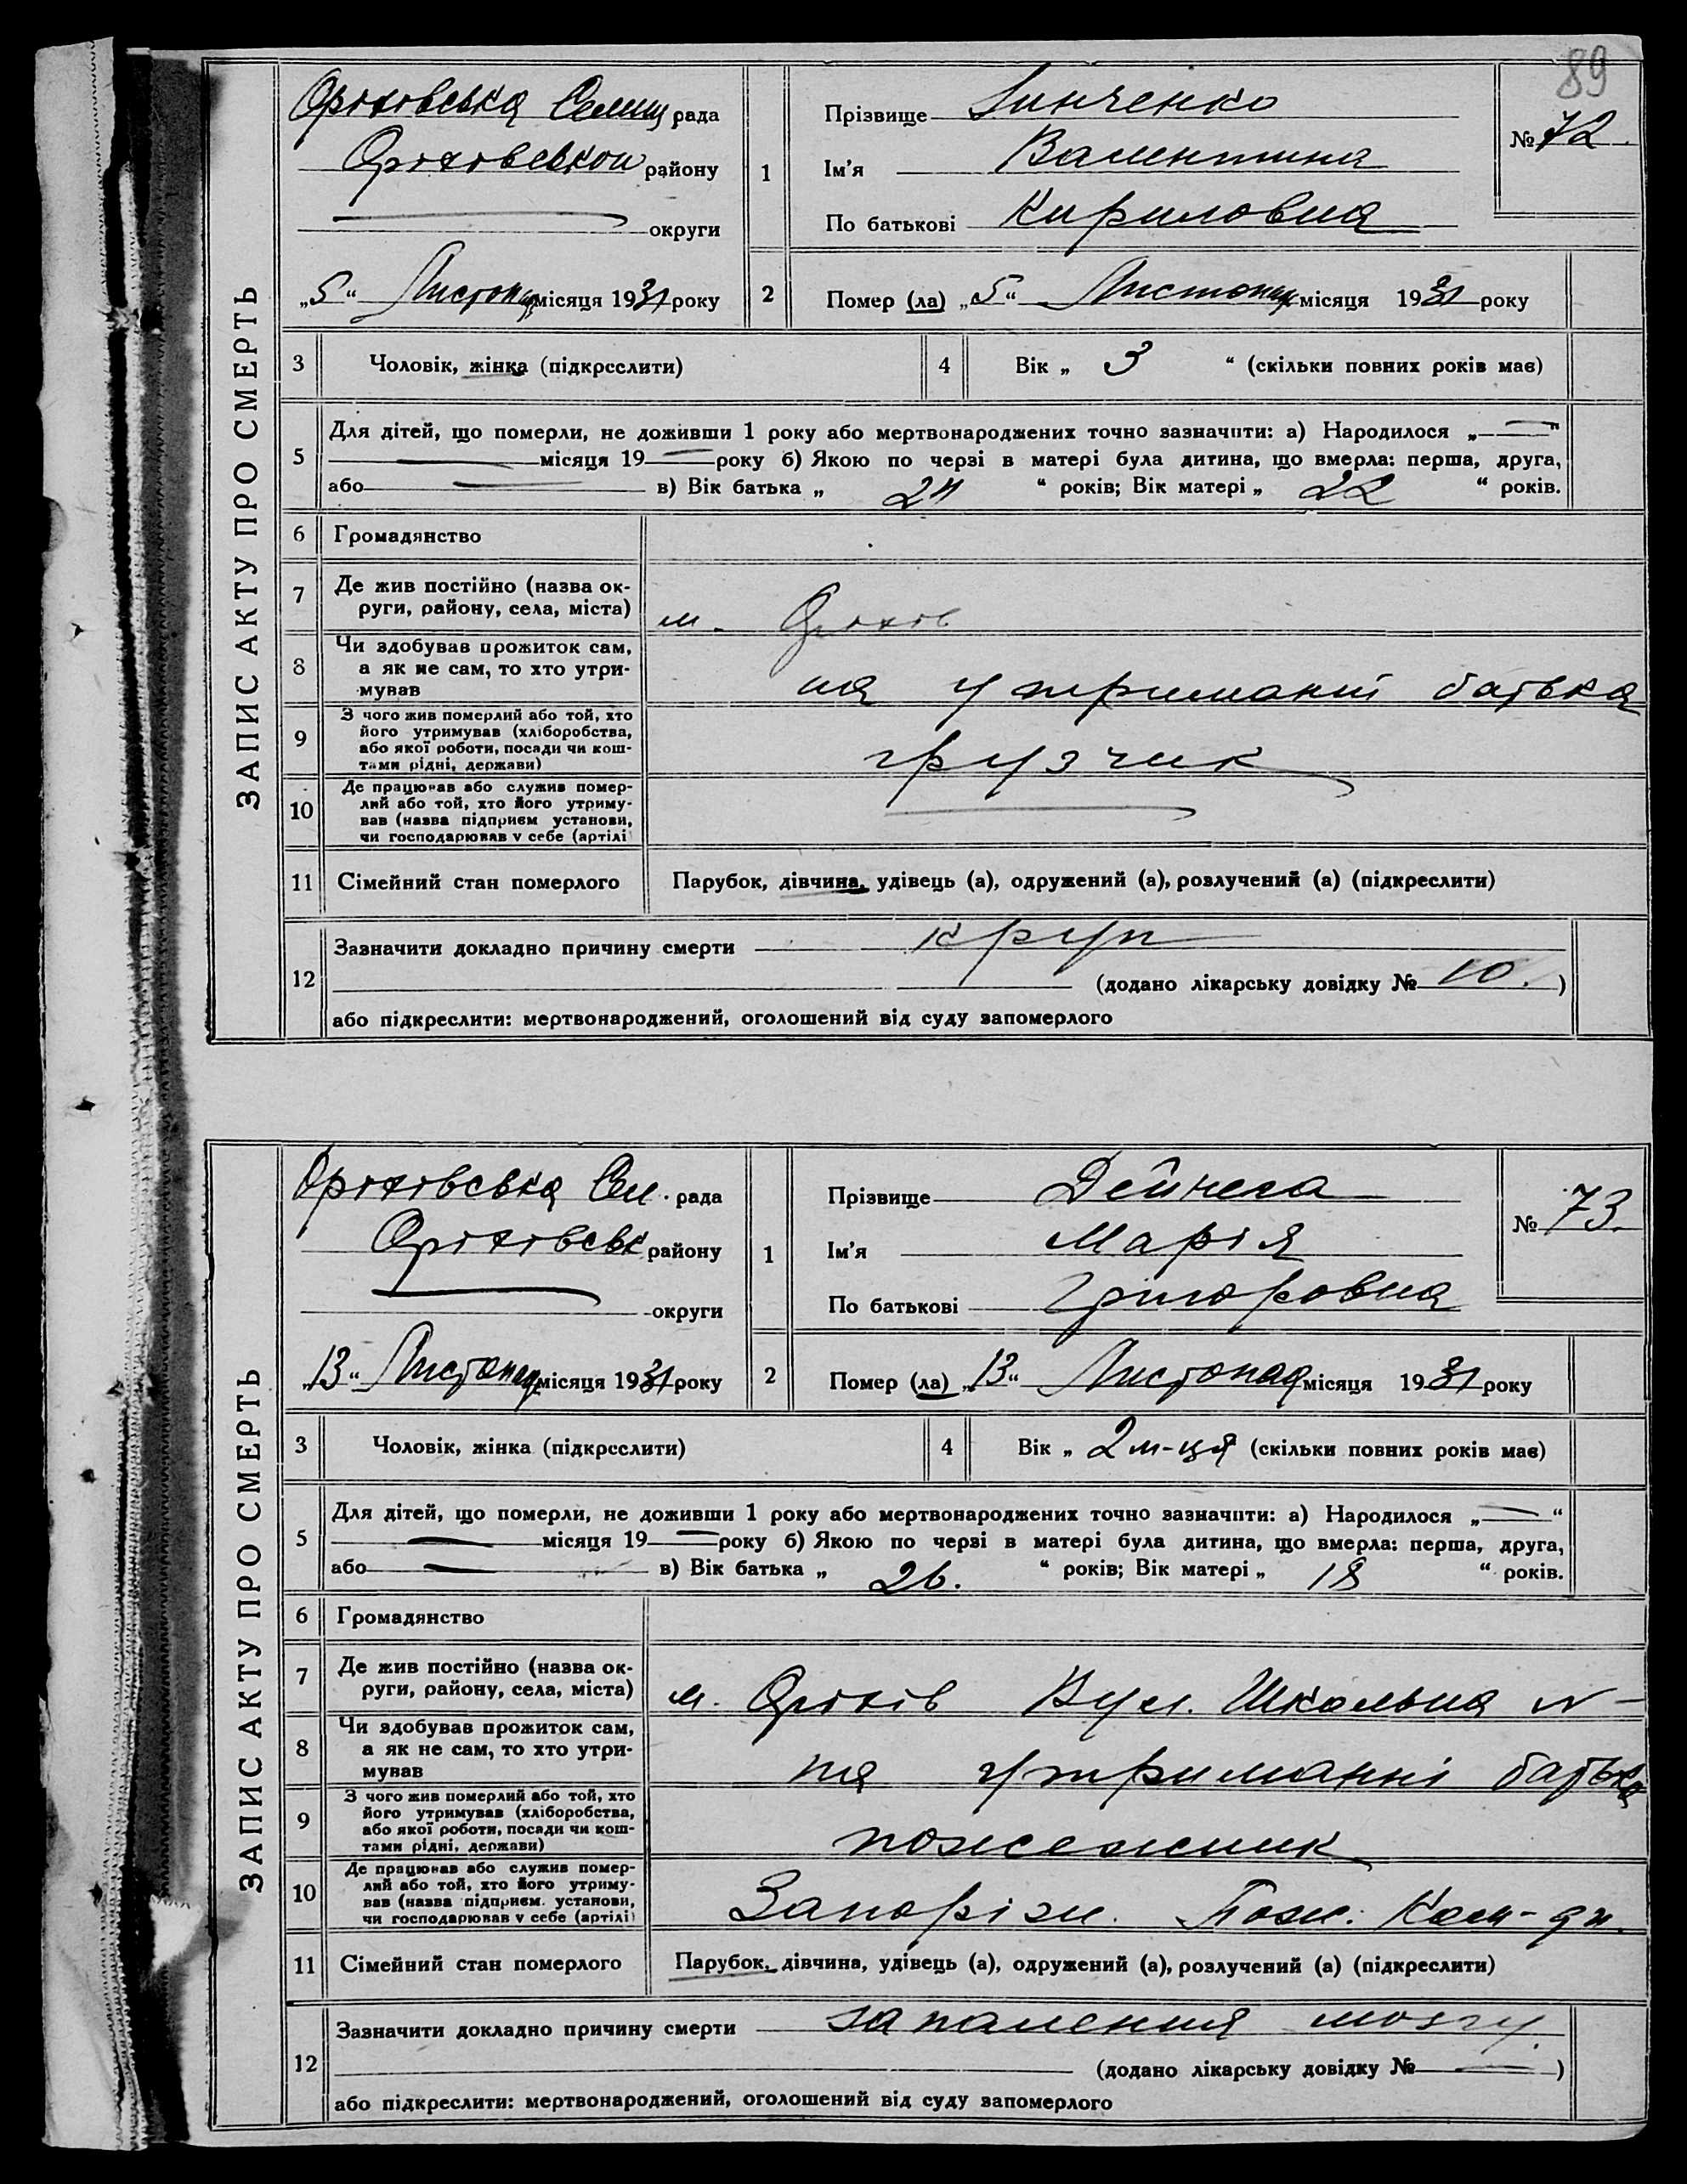 89
ЗАПИС АКТУ ПРО СМЕРТЬ
Оріхівська Селищ рада
Оріхівськои району
округи
„5“ Листопад місяця 1931 року
1
Прізвище Зинченко
Ім'я Валентина
По батькові Кириловна
№ 72.
2
Помер (ла) „5“ Листопад місяця 1931 року
3 Чоловік, жінка (підкреслити)
4 Вік „ 3 “ (скільки повних років має)
5
Для дітей, що померли, не доживши 1 року або мертвонароджених точно зазначити: а) Народилося „—“
місяця 19— року б) Якою по черзі в матері була дитина, що вмерла: перша, друга,
або — в) Вік батька „ 24 “ років; Вік матері „ 22 “ років.
6 Громадянство
7 Де жив постійно (назва ок-
руги, району, села, міста)
м. Оріхів
8 Чи здобував прожиток сам,
а як не сам, то хто утри-
мував
на утриманні батька
9 З чого жив померлий або той, хто
його утримував (хліборобства,
або якої роботи, посади чи кош-
тами рідні, держави)
грузчик
10 Де працював або служив помер-
лий або той, хто його утриму-
вав (назва підприєм установи,
чи господарював у себе (артілі)
11 Сімейний стан померлого
Парубок, дівчина, удівець (а), одружений (а), розлучений (а) (підкреслити)
12
Зазначити докладно причину смерти круп
(додано лікарську довідку № 10.)
або підкреслити: мертвонароджений, оголошений від суду запомерлого
ЗАПИС АКТУ ПРО СМЕРТЬ
Оріхівська Сел. рада
Оріхівськ району
округи
„13“ Листопад місяця 1931 року
1
Прізвище Дейнега
Ім'я Марія
По батькові Григоровна
№ 73.
2
Помер (ла) „13“ Листопад місяця 1931 року
3 Чоловік, жінка (підкреслити)
4 Вік „ 2 м-ця (скільки повних років має)
5
Для дітей, що померли, не доживши 1 року або мертвонароджених точно зазначити: а) Народилося „—“
місяця 19— року б) Якою по черзі в матері була дитина, що вмерла: перша, друга,
або — в) Вік батька „ 26. “ років; Вік матері „ 18 “ років.
6 Громадянство
7 Де жив постійно (назва ок-
руги, району, села, міста)
м. Оріхів Вул. Школьна №—
8 Чи здобував прожиток сам,
а як не сам, то хто утри-
мував
на утриманні батька
9 З чого жив померлий або той, хто
його утримував (хліборобства,
або якої роботи, посади чи кош-
тами рідні, держави)
пожежник
10 Де працював або служив помер-
лий або той, хто його утриму-
вав (назва підприєм. установи,
чи господарював у себе (артілі)
Запоріж. Пож.
11 Сімейний стан померлого
Парубок, дівчина, удівець (а), одружений (а), розлучений (а) (підкреслити)
12
Зазначити докладно причину смерти запалення мозгу.
(додано лікарську довідку № —)
або підкреслити: мертвонароджений, оголошений від суду запомерлого